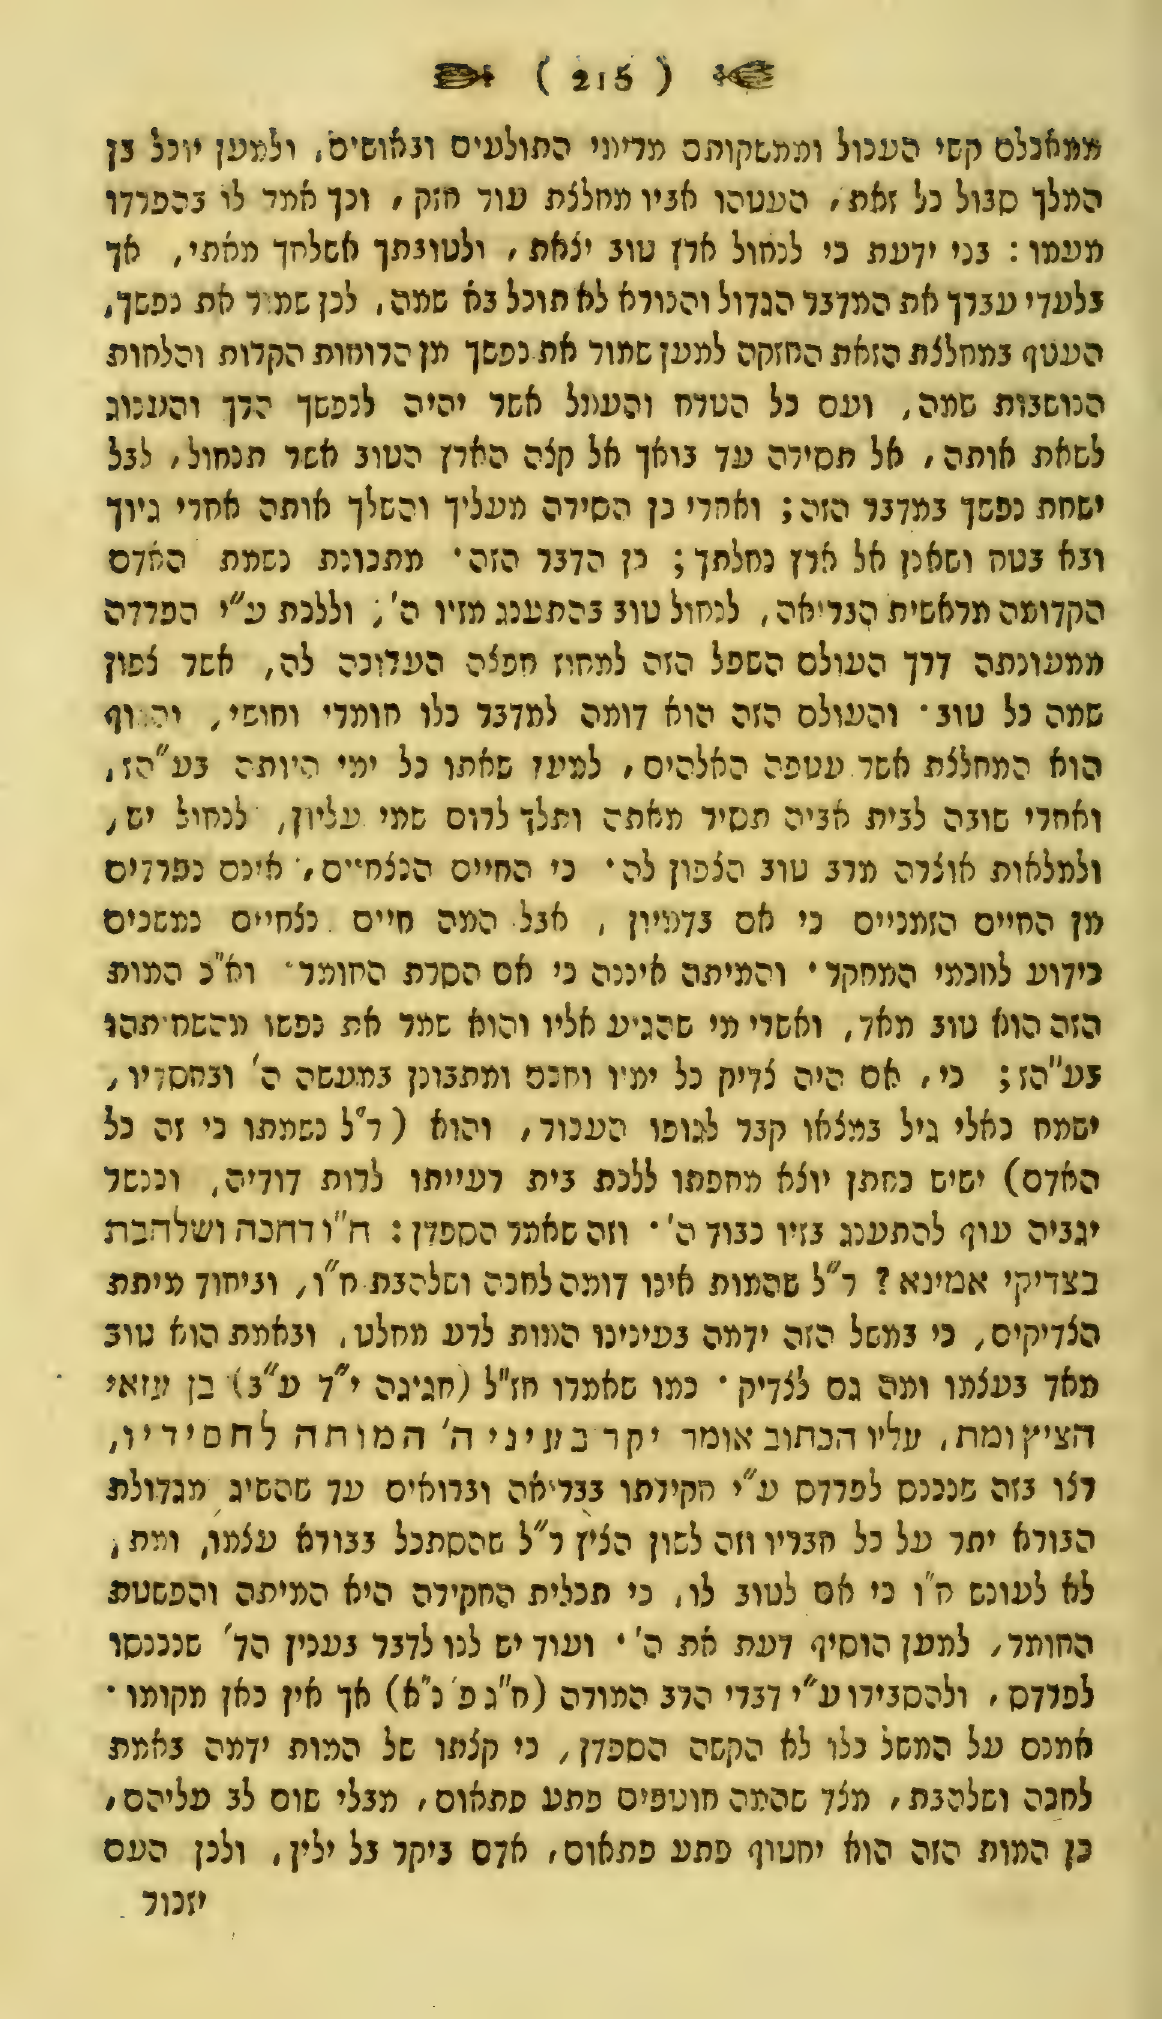 ( 215 )
ממאכלם קשי העכול וממשקותם מריוני התולעים ובאושים, ולמען יוכל בן
המלך סבול כל זאת, העטהו אביו מחלצת עור חזק, וכך אמר לו בהפרדו
מעמו : בני ידעת כי לנחול ארץ טוב יצאת, ולטובתך אשלחך מאתי, אך
בלעדי עברך את המדבר הגדול והנורא לא תוכל בא שמה, לכן שמור את נפשך,
העטף במחלצת הזאת החזקה למען שמור את נפשך מן הרוחות הקרות והלחות
הנושבות שמה, ועם כל הטרח והעמל אשר יהיה לנפשך הרך והענוג
לשאת אותה, אל תסירה עד בואך אל קצה הארץ הטוב אשר תנחול, לבל
ישחת נפשך במדבר הזה; ואחרי כן הסירה מעליך והשלך אותה אחרי גיוך
ובא בטח ושאנן אל ארץ נחלתך; כן הדבר הזה· מתכונת נשמת האדם
הקדומה מראשית הבריאה, לנחול טוב בהתענג מזיו ה'; וללכת ע"י הפרדה
ממעונתה דרך העולם השפל הזה למחוז חפצה העדונה לה, אשר צפון
שמה כל טוב· והעולם הזה הוא דומה למדבר כלו חומרי וחושי, והגוף
הוא המחלצת אשר עטפה האלהים, למען שאתו כל ימי היותה בע"הז,
ואחרי שובה לבית אביה תסיר מאתה ותלך לרום שמי עליון, לנחול יש,
ולמלאות אוצרה מרב טוב הצפון לה· כי החיים הנצחיים, אינם נפרדים
מן החיים הזמניים כי אם בדמיון, אבל המה חיים נצחיים נמשכים
כידוע לחכמי המחקר· והמיתה איננה כי אם הסרת החומר· וא"כ המות
הזה הוא טוב מאד, ואשרי מי שהגיע אליו והוא שמר את נפשו מהשחיתהו
בע"הז; כי, אם היה צדיק כל ימיו וחכם ומתבונן במעשה ה' ובחסדיו,
ישמח כאלי גיל במצאו קבר לגופו העכור, והוא (ר"ל נשמתו כי זה כל
האדם) ישיש כחתן יוצא מחפתו ללכת בית רעייתו לרות דודיה, וכנשר
יגביה עוף להתענג בזיו כבוד ה'· וזה שאמר הספדן: ח"ו דחכה ושלהבת
בצדיקי אמינא? ר"ל שהמות אינו דומה לחכה ושלהבת ח"ו, וביחוד מיתת
הצדיקים, כי במשל הזה ידמה בעינינו המות לרע מחלט, ובאמת הוא טוב
מאד בעצמו ומה גם לצדיק· כמו שאמרו חז"ל (חגיגה י"ד ע"ב) בן עזאי
הציץ ומת, עליו הכתוב אומר יקר בעיני ה' המותה לחסידיו,
רצו בזה שנכנס לפרדס ע"י חקירתו בבריאה וברואים עד שהשיג מגדולת
הבורא יתר על כל חבריו וזה לשון הציץ ר"ל שהסתכל בבורא עצמו, ומת,
לא לעונש ח"ו כי אם לטוב לו, כי תכלית החקירה היא המיתה והפשטת
החומר, למען הוסיף דעת את ה'· ועוד יש לנו לדבר בענין הד' שנכנסו
לפרדס, ולהסבירו ע"י דברי הרב המורה (ח"ג פ' נ"א) אך אין כאן מקומו·
אמנם על המשל כלו לא הקשה הספדן, כי קצתו של המות ידמה באמת
לחכה ושלהבת, מצד שהמה חוטפים פתע פתאום, מבלי שום לב עליהם,
כן המות הזה הוא יחטוף פתע פתאום, אדם ביקר בל ילין, ולכן העם
יזכור